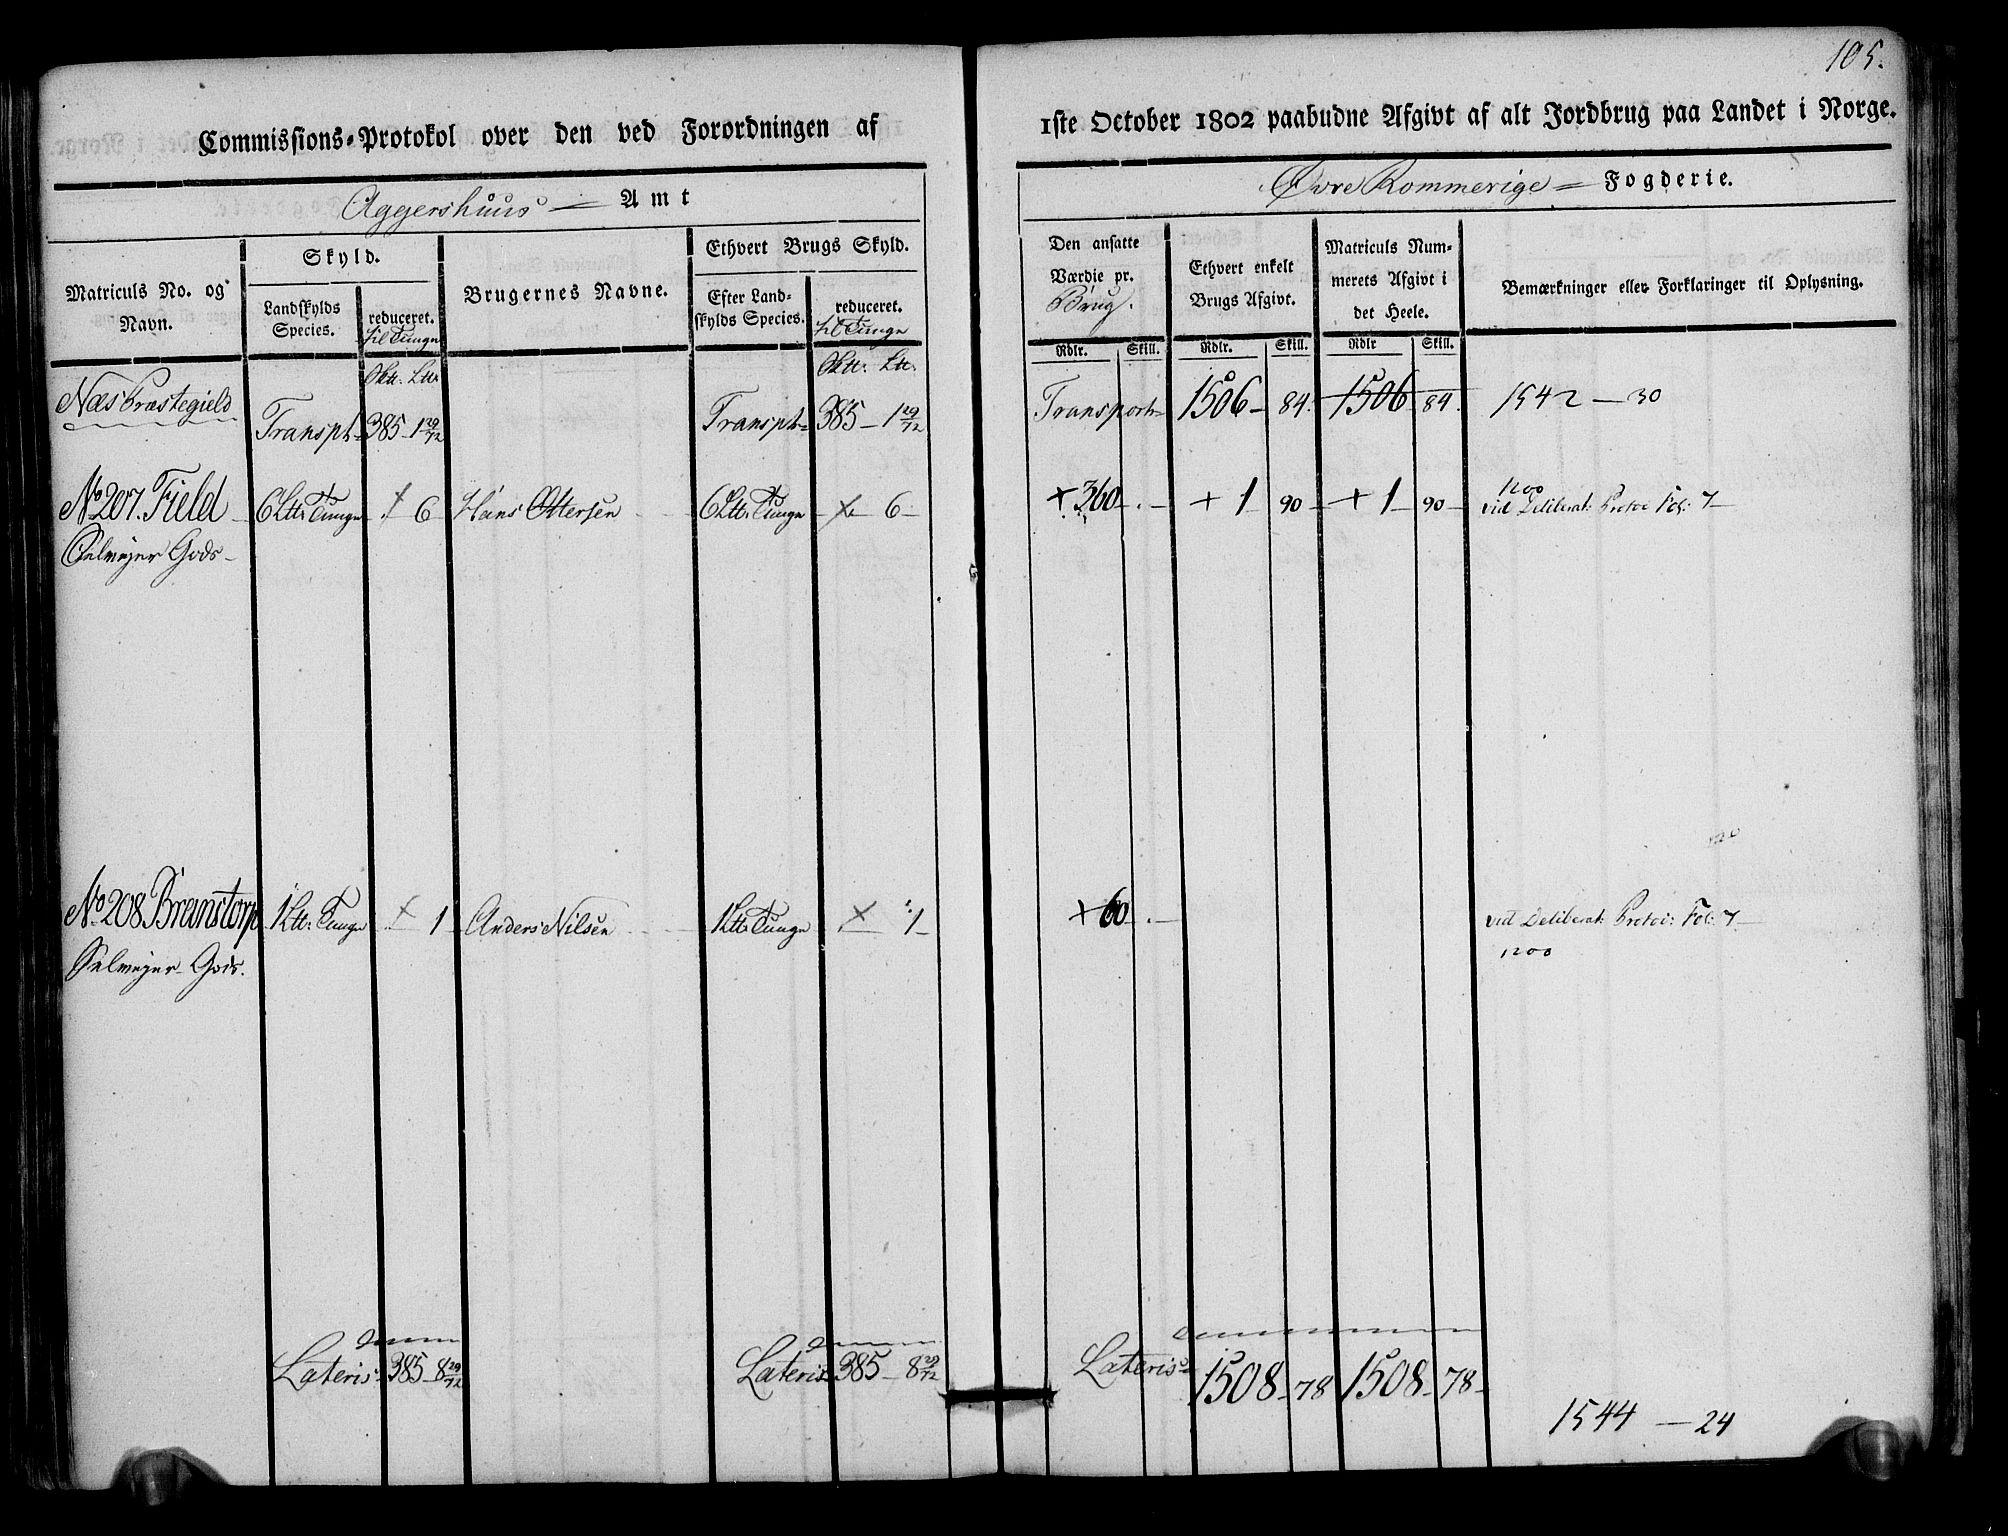 105.
Commissions-Protokol over den ved Forordningen af 1ste October 1802 paabudne Afgivt af alt Jordbrug paa Landet i Norge.
Aggershuus Amt
Øvre Rommerige Fogderie.
Matriculs No. og Navn.
Skyld.
Landskylds Species.
reduceret.
til Tunge
Brugernes Navne.
Ethvert Brugs Skyld.
Efter Landskylds Species.
reduceret.
til Tunge
Den ansatte Værdie pr.
Brug.
Ethvert enkelt Brugs Afgivt.
Matriculs Nummerets Afgivt i det Heele.
Bemærkninger eller Forklaringer til Oplysning.
Rdlr. Skill. Rdlr. Skill. Rdlr Skill.
Næs Præstegield Transpt 385 - 1 29/72 Transpt 385 - 1 29/72 Transport 1506 - 84. 1506 84. 1542 - 30
No 207. Field 6 Ltt: Tunge + 6 Hans Ottersen 6 Ltt: Tunge + 6 + 360 - . - + 1 90 - + 1 90 - vid Deliberat: Protoc Fol: 7
1200
Selvejer Gods
No 208 Branstorp 1 Ltt: Tunge + 1 Anders Nilsen 1 Ltt: Tunge + 1 + 60 - . - vid Deliberat: Protoc: Fol: 7
Selvejer Gods. 1200
Lateris 385 - 8 29/72 Lateris 385 - 8 29/72 Lateris 1508 - 78 1508 - 78 -
1544 - 24